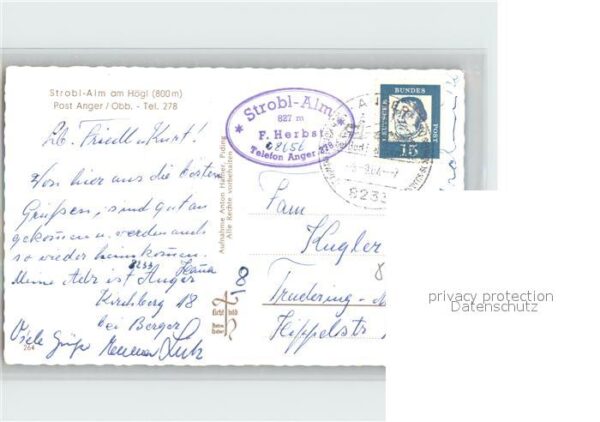 Strobl-Alm am Högl (800m)
Post Anger / Obb. - Tel. 278
Strobl-Alm
827 m
F. Herbst
Telefon Anger 278
DEUTSCHE BUNDES POST
15
8233
Lb. Friedl u Kurt!
Von hier aus die besten
Grüßen, sind gut an
gekommen u. werden auch
so wieder heimkommen.
Meine Adr ist Anger
8233
Kirchberg 18
bei Berger
Viele Grüße
264
Aufnahme Anton Hafner, Piding
Alle Rechte vorbehalten
Fam
Kugler
8
Trudering - M
Hippelstr
privacy protection
Datenschutz